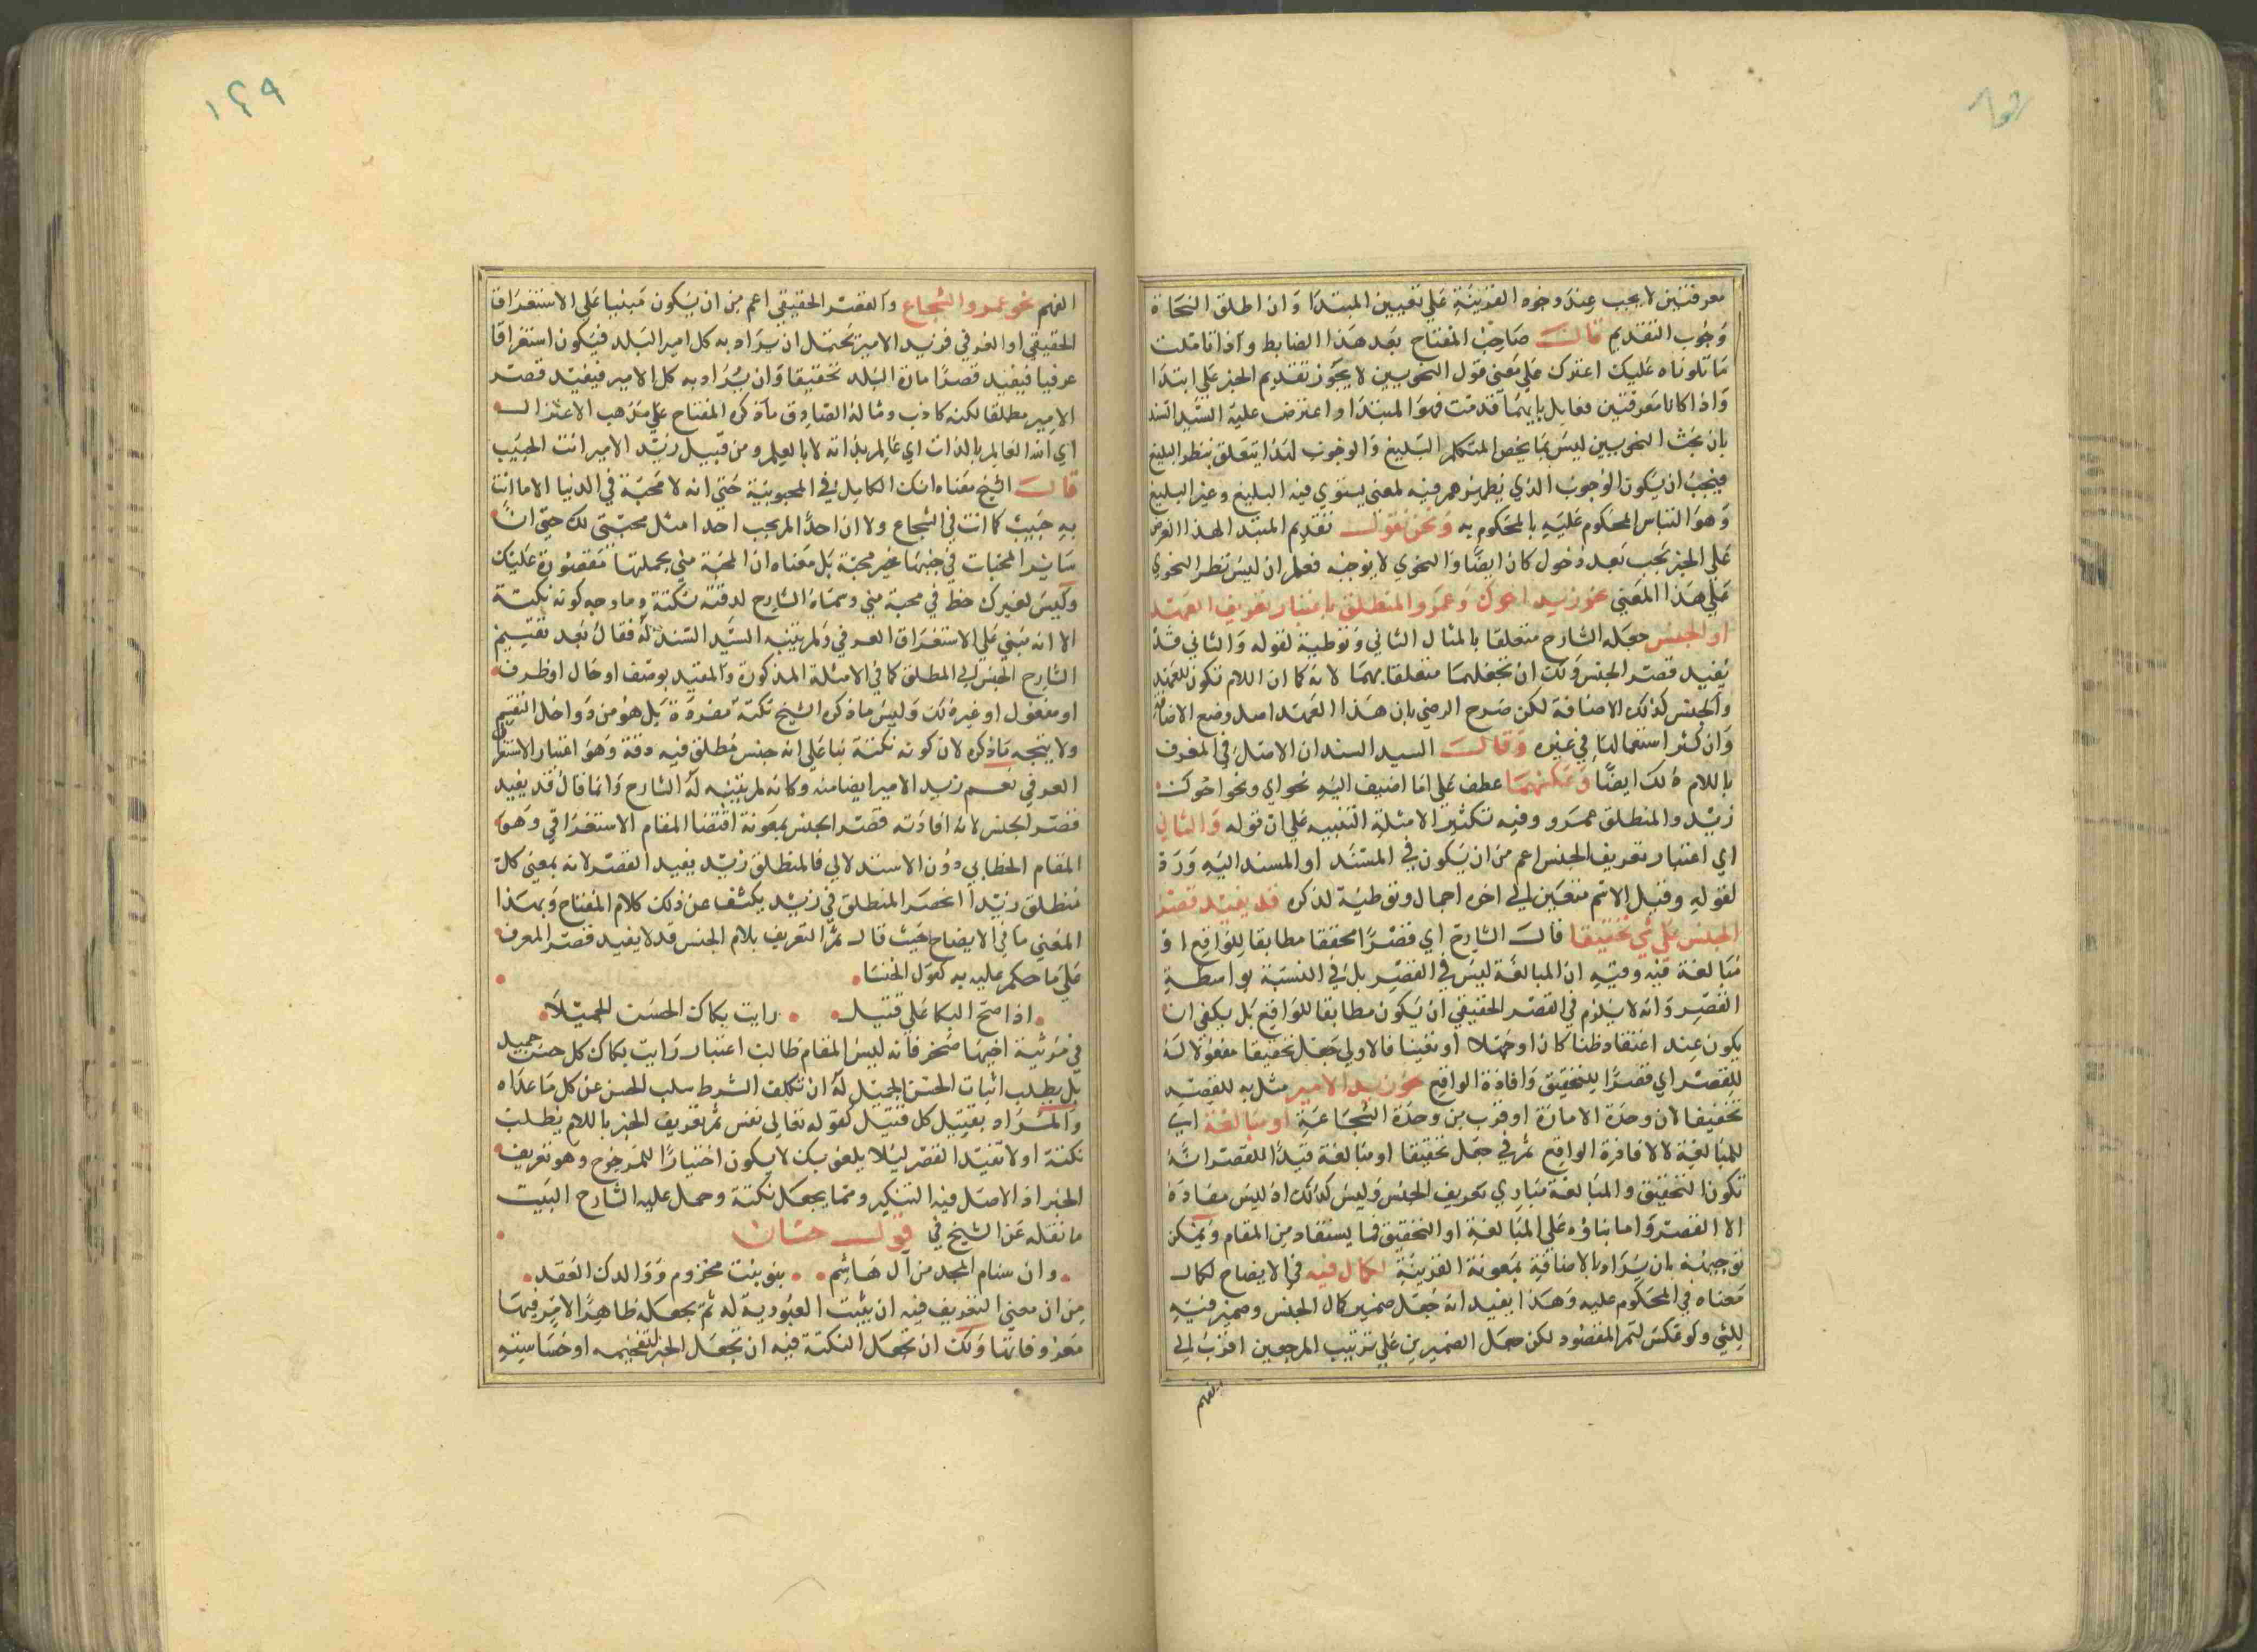 معرفتين لا يجب عند وجوه القرينة على تعيين المبتدا وان اطلق النحاة
وجوب التقديم قالـــ صاحب المفتاح بعد هذا الضابط واذا تاملت
ما تلوناه عليك اعترك على معنى قول النحويين لا يجوز تقديم الخبر على ابتدا
واذا كانا معرفتين معا بل بايهما قدمت فهو المبتدا واعترض عليه السيد السند
بان بحث النحويين ليس بما يخص المتكلم البليغ والوجوب لذا يتعلق بنظر البليغ
فيجب ان يكون الوجوب الذي نظرهم فيه لمعنى يستوي فيه البليغ وغير البليغ
وهو التباس المحكوم عليه بالمحكوم به ونحن نقولــ تقديم المبتدا لهذا الغرض
على الخبر يجب بعد دخول كان ايضا والنحوي لا يوجبه فعلم ان ليس نظر النحوي
على هذا المعنى نحو زيد اخوك وعمرو المنطلق باعتبار تعريف العهد
او الجنس جعله الشارح متعلقا بالمثال الثاني وتوطية لقوله والثاني قد
يفيد قصر الجنس ولك ان تجعلهما متعلقا بهما لانه كما ان اللام تكون للعهد
والجنس كذلك الاضافة لكن صرح الرضي بان هذا العهد اصل وضع الاضافة
وان كثر استعمالها في غيره وقالــ السيد السند ان الاصل في المعرف
باللام ذلك ايضا وعكسهما عطف على ما اضيف اليه نحو اي ونحو اخوك
زيد والمنطلق عمرو وفيه تكثير الامثلة التنبيه على ان قوله والثاني
اي اعتبار تعريف الجنس اعم من ان يكون في المسند او المسند اليه ورة
لقوله وقيل الاسم متعين الى اخره اجمال وتوطية لذكره قد يفيد قصر
الجنس على شي تحقيقا قالــ الشارح اي قصرا محققا مطابقا للواقع او
مبالغة فيه وفيه ان المبالغة ليس في القصر بل في النسبة بواسطة
القصر وانه لا يلزم في القصر الحقيقي ان يكون مطابقا للواقع بل يكفي ان
يكون عند اعتقاد ظنا كان او جهلا او يقينا فالاولى جعل تحقيقا مفعولا له
للقصر اي قصرا للتحقيق وافادة الواقع نحو زيد الامير مثل به للقصر
تحقيقا لان وحدة الامارة اوقرب من وحدة الشجاعة او مبالغة اي
للمبالغة لا لافادة الواقع ثم في جعل تحقيقا او مبالغة قيدا للقصر انه
تكون التحقيق والمبالغة مباري تعريف الجنس وليس كذلك اذ ليس مفاده
الا القصر واما بناؤه على المبالغة او التحقيق فما يستفاد من المقام ويمكن
توجيهه بان يراد بالاضافة بمعونة القرينة لكمال فيه في الايضاح لكمال
معناه في المحكوم عليه وهذا يفيد انه جعل ضمير كمال الجنس وضمير فيه
للشي ولو عكس لتم المقصود لكن حمل الضميرين على ترتيب المرجعين اقرب الى
الفهم
١٢٩
الفهم نحو عمرو الشجاع والقصر الحقيقي اعم من ان يكون مبنيا على الاستغراق
الحقيقي او العرفي فزيد الامير يحتمل ان يراد به كل امير البلد فيكون استغراقا
عرفيا فيفيد قصر امارة البلد تحقيقا وان يراد به كل الامير فيفيد قصر
الامير مطلقا لكنه كاذب ومثاله الصادق ما ذكره المفتاح على مذهب الاعتزالــ
اي الله العالم بالذات اي عالم بذاته لا بالعلم ومن قبيل زيد الامير انت الحبيب
قالــ الشيخ معناه انك الكامل في المحبوبية حتى انه لا محبة في الدنيا الا ما انت
به حبيب كما انت في الشجاع ولا ان احدا لم يحب احدا مثل محبتي لك حتى ان
سائر المحبات في جنبها غير محبة بل معناه ان المحبة مني بجملتها مقصورة عليك
وليس لغيرك حظ في محبة مني وسماه الشارح لدقته نكتة وما وجه كونه نكتة
الا انه مبني على الاستغراق العرفي ولم يتنبه السيد السند له فقال بعد تقسيم
الشارح الجنس الى المطلق كما في الامثلة المذكورة والمقيد بوصف او حال او ظرف
او مفعول او غير ذلك وليس ما ذكره الشيخ نكتة مفردة بل هو من دواخل التقسيم
ولا يتجه ما ذكره لان كونه نكتة بنا على انه جنس مطلق فيه دقة وهو اعتبار الاستغراق
العرفي نعم زيد الامير ايضا منه وكانه لم يتنبه له الشارح وانما قال قد يفيد
قصر الجنس لانه افادته قصر الجنس بمعونة اقتضا المقام الاستغراقي وهو
المقام الخطابي دون الاستدلالي فالمنطلق زيد يفيد القصر لانه بمعنى كل
منطلق زيد انحصر المنطلق في زيد يكشف عن ذلك كلام المفتاح وبهذا
المعنى ما في الايضاح حيث قالــ ثم التعريف بلام الجنس قد لا يفيد قصر المعرف
على ما حكم عليه به كقول الخنسا
اذا قبح البكا على قتيلــ رايت بكاك الحسن الجميلا
في مرثية اخيها صخر فانه ليس المقام طالب اعتبار رايت بكاك كل حسن جميل
بل يطلب اثبات الحسن الجميل له ان تتكلف الشرط سلب الحسن عن كل ما عداه
والمراد بقتيل كل قتيل كقوله تعالى نفس ثم تعريف الخبر باللام يطلب
نكتة اولا تقييد القصر ليلا يلغو بك لا يكون اختيارا للمرجوح وهو تعريف
الخبر اذ الاصل فيه التنكير ومما يجعل نكتة وحمل عليه الشارح البيت
ما نقله عن الشيخ في قولــ حسان
وان سنام المجد من آل هاشم بنو بنت مخزوم ووالدك العبد
من ان معنى التعريف فيه ان يثبت العبودية له ثم يجعله ظاهر الامر فيها
معروفا بها ولك ان تجعل النكتة فيه ان تجعل الخبر لتفخيمه او خساسته